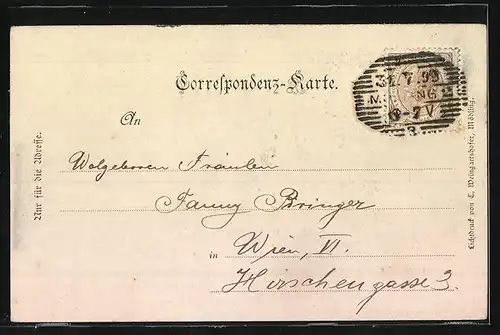 Correspondenz-Karte.
31.7.99
6-7V
3
An
Wolgeboren Fräulein
Fanny Bringer
in Wien, VI.
Hirschengasse 3.
Nur für die Adresse.
Lichtdruck von C. Weingartshofer, Mödling.